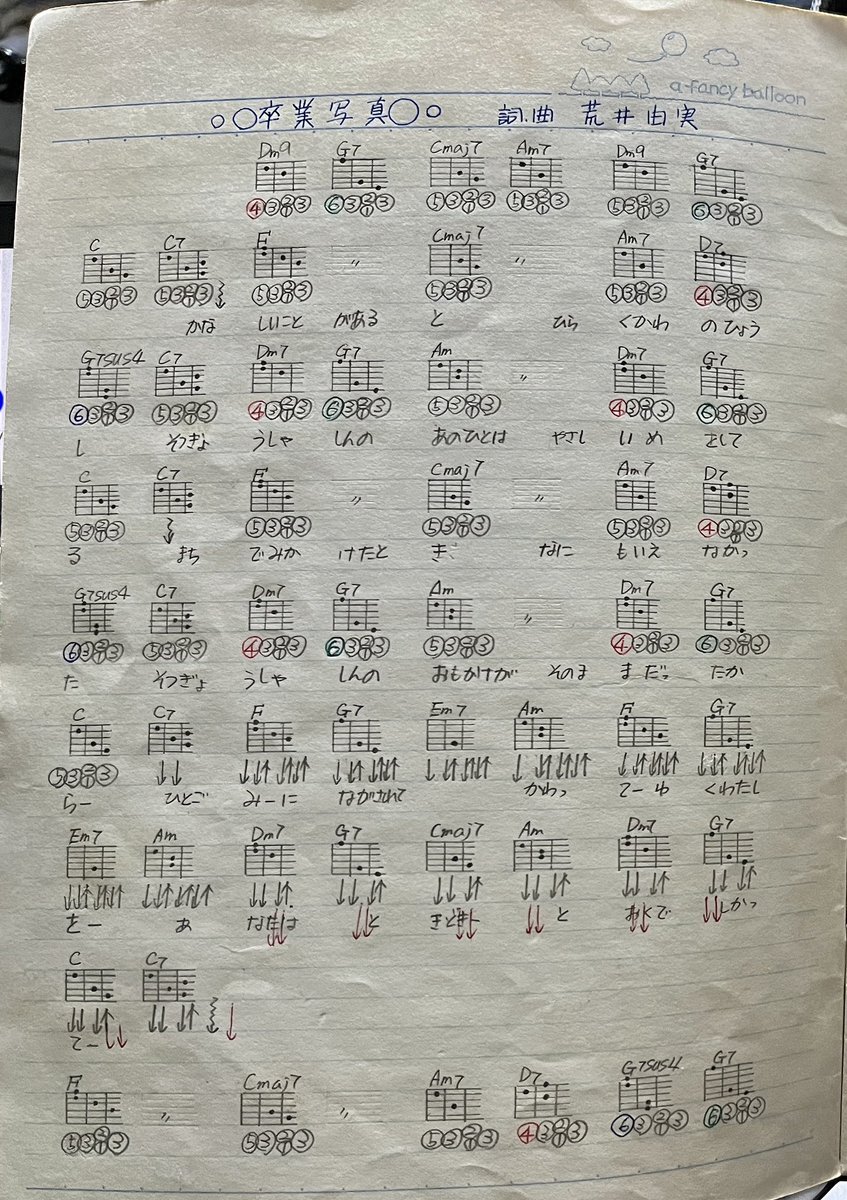 a-fancy balloon
○○卒業写真○○ 詞.曲 荒井由実
Dm9 G7 Cmaj7 Am7 Dm9 G7
④③②①③ ⑥③②①③ ⑤③②①③ ⑤③②①③ ⑤③②①③ ⑥③②①③
C C7 F 〃 Cmaj7 〃 Am7 D7
⑤③②①③ ⑤③②①③ ⑤③②①③ ⑤③②①③ ⑤③②①③ ④③②①③
かな しいこと がある と ひら くかわ のひょう
G7sus4 C7 Dm7 G7 Am 〃 Dm7 G7
⑥③②①③ ⑤③②①③ ④③②①③ ⑥③②①③ ⑤③②①③ ④③②①③ ⑥③②①③
し そつぎょ うしゃ しんの あのひとは やさし いめ をして
C C7 F 〃 Cmaj7 〃 Am7 D7
⑤③②①③ ⑤③②①③ ⑤③②①③ ⑤③②①③ ④③②①③
る まち でみか けたと き なに もいえ なかっ
G7sus4 C7 Dm7 G7 Am 〃 Dm7 G7
⑥③②①③ ⑤③②①③ ④③②①③ ⑥③②①③ ⑤③②①③ ④③②①③ ⑥③②①③
た そつぎょ うしゃ しんの おもかげが そのま まだっ たか
C C7 F G7 Em7 Am F G7
⑤③②①③ ↓↓ ↓↓↑ ↓↑↓↑ ↓↓↑ ↓↑↓↑ ↓ ↓↑ ↓↑↓↑ ↓ ↓↑ ↓↑↓↑ ↓↓↑ ↓↑↓↑ ↓↓↑ ↓↑↓↑
らー ひとご みーに ながされて かわっ てーゆ くわたし
Em7 Am Dm7 G7 Cmaj7 Am Dm7 G7
↓↓↑↓↑↓↑ ↓↓↑↓↑↓↑ ↓↓ ↓↑ ↓↓ ↓↑ ↓↓ ↓↑ ↓↓ ↓↑ ↓↓ ↓↑ ↓↓ ↓↑
をー あ なたは と きどき と おくで しかっ
C C7
↓↓ ↓↑ ↓↓ ↓↑
てー
F 〃 Cmaj7 〃 Am7 D7 G7sus4 G7
⑤③②①③ ⑤③②①③ ⑤③②①③ ④③②①③ ⑥③②①③ ⑥③②①③